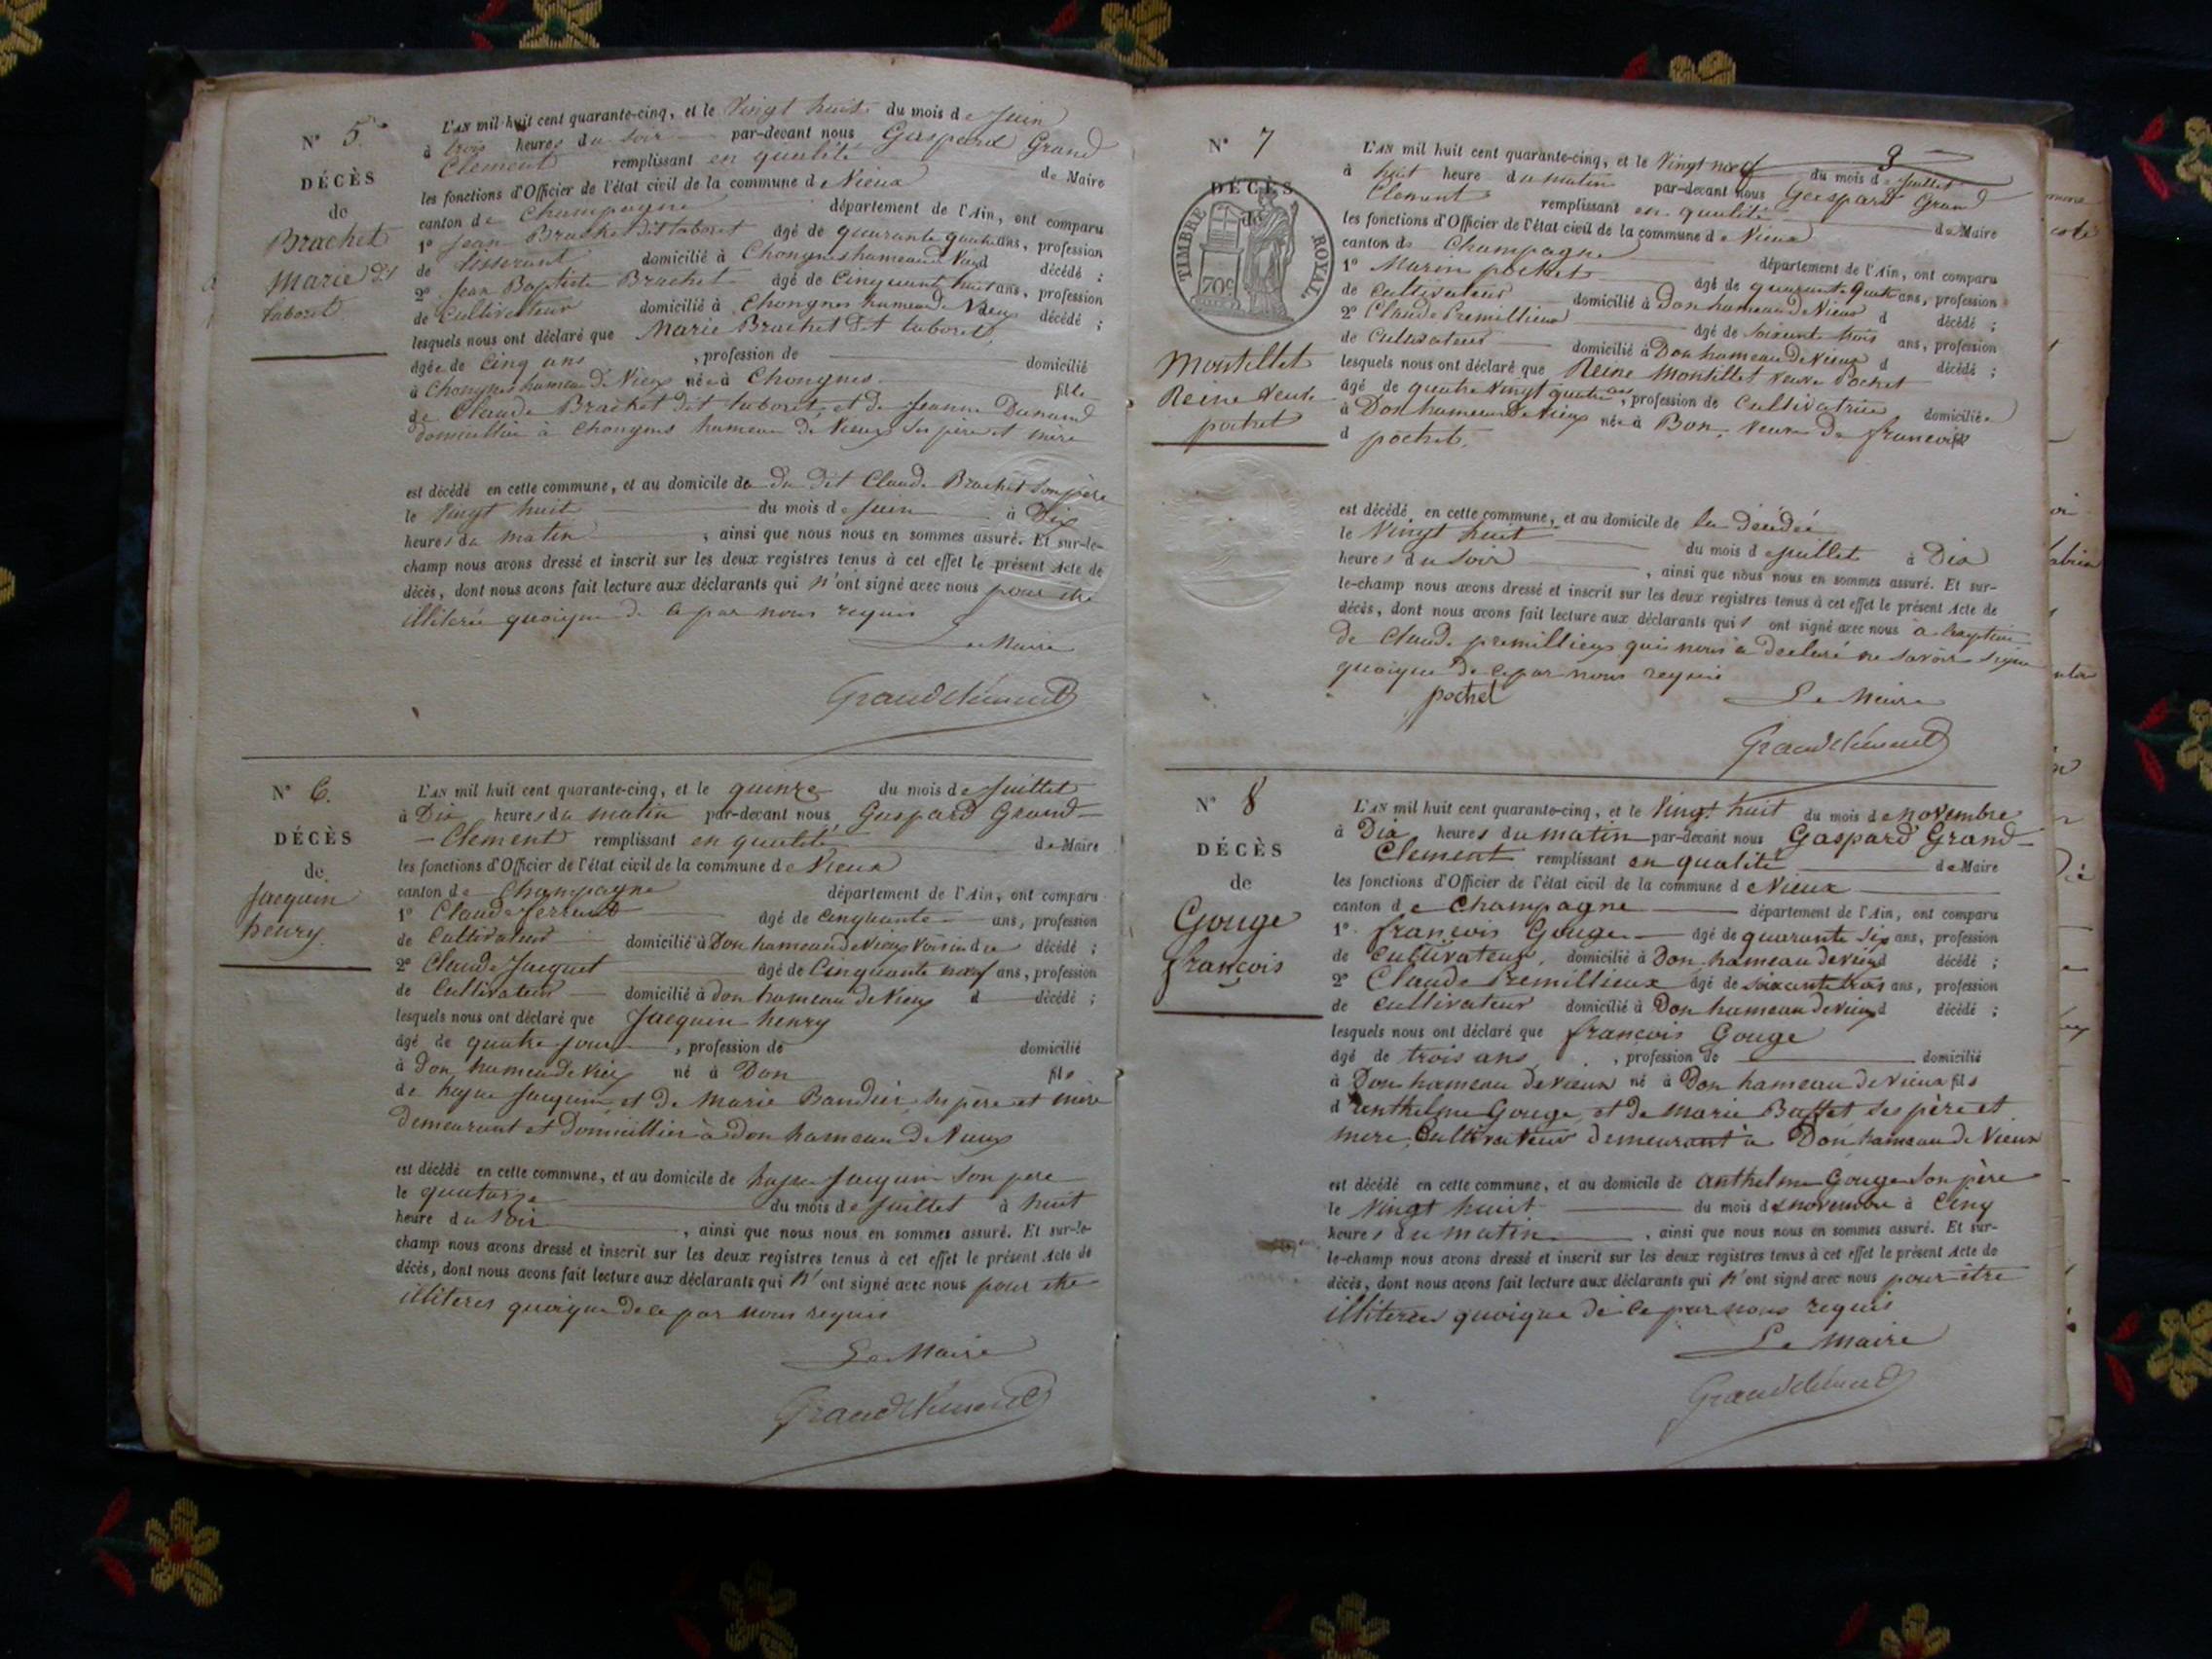 N° 5.
DÉCÈS
de
Brachet
Marie dt
taboret
L'AN mil huit cent quarante-cinq, et le Vingt huit du mois de Juin
à trois heures du soir par-devant nous Gaspard Grand
Clement remplissant en qualité de Maire
les fonctions d'Officier de l'état civil de la commune de Vieux
canton de Champagne département de l'Ain, ont comparu
1° Jean Brachet dit taboret âgé de quarante quatre ans, profession
de tisserant domicilié à Chongnes hameau de décédé ;
2° Jean Baptiste Brachet âgé de Cinquante huit ans, profession
de Cultivateur domicilié à Chongnes hameau de Vieux décédé ;
lesquels nous ont déclaré que Marie Brachet dit taboret,
âgée de Cinq ans , profession de domicilié
à Chongnes hameau de Vieux née à Chongnes fille
de Claude Brachet dit taboret, et de Jeanne Dunand
domicilliés à Chongnes hameau de Vieux ses père et mère
est décédé en cette commune, et au domicile de du dit Claude Brachet son père
le Vingt huit du mois de Juin à Dix
heures du matin , ainsi que nous nous en sommes assuré. Et sur-le-
champ nous avons dressé et inscrit sur les deux registres tenus à cet effet le présent Acte de
décès, dont nous avons fait lecture aux déclarants qui n'ont signé avec nous pour être
illiteré quoique de ce par nous requis
Le Maire
Grandclément
N° 6.
DÉCÈS
de
Jacquin
henry
L'AN mil huit cent quarante-cinq, et le quinze du mois de Juillet
à Dix heures du matin par-devant nous Gaspard Grand
Clement remplissant en qualité de Maire
les fonctions d'Officier de l'état civil de la commune de Vieux
canton de Champagne département de l'Ain, ont comparu
1° Claude âgé de cinquante ans, profession
de Cultivateur domicilié à Don hameau de Vieux Voisin du décédé ;
2° Claude Jacquet âgé de Cinquante neuf ans, profession
de Cultivateur domicilié à Don hameau de Vieux d décédé ;
lesquels nous ont déclaré que Jacquin henry
âgé de quatre jours , profession de domicilié
à Don hameau de Vieux né à Don fils
de Jacquin et de Marie Baudier, ses père et mère
Demeurant et Domicilliés à Don hameau de Vieux
est décédé en cette commune, et au domicile de Jacquin son père
le quatorze du mois de Juillet à huit
heure du soir , ainsi que nous nous en sommes assuré. Et sur-le-
champ nous avons dressé et inscrit sur les deux registres tenus à cet effet le présent Acte de
décès, dont nous avons fait lecture aux déclarants qui n'ont signé avec nous pour être
illiteres quoique de ce par nous requis
Le Maire
Grandclément
3
N° 7
DÉCÈS
de
TIMBRE ROYAL
70c
Montillet
Reine Veuve
pochet
L'AN mil huit cent quarante-cinq, et le Vingt neuf du mois de Juillet
à huit heure du matin par-devant nous Gaspard Grand
Clement remplissant en qualité de Maire
les fonctions d'Officier de l'état civil de la commune de Vieux
canton de Champagne département de l'Ain, ont comparu
1° Marin pochet âgé de quarante quatre ans, profession
de Cultivateur domicilié à Don hameau de Vieux d décédé ;
2° Claude Premillieux âgé de soixante trois ans, profession
de Cultivateur domicilié à Don hameau de Vieux d décédé ;
lesquels nous ont déclaré que Reine Montillet veuve Pochet
âgé de quatre Vingt quatre ans, profession de Cultivatrice domiciliée
à Don hameau de Vieux née à Bon, Veuve de francois
d pochet.
est décédé en cette commune, et au domicile de la décédée
le Vingt huit du mois de Juillet à Dix
heures du soir , ainsi que nous nous en sommes assuré. Et sur-
le-champ nous avons dressé et inscrit sur les deux registres tenus à cet effet le présent Acte de
décès, dont nous avons fait lecture aux déclarants qui s ont signé avec nous à l'exception
de Claude premillieux qui nous a declaré ne savoir signer
quoique de ce par nous requis
pochet
Le Maire
Grandclément
N° 8
DÉCÈS
de
Gouge
françois
L'AN mil huit cent quarante-cinq, et le Vingt huit du mois de novembre
à Dix heures du matin par-devant nous Gaspard Grand
Clement remplissant en qualité de Maire
les fonctions d'Officier de l'état civil de la commune de Vieux
canton de Champagne département de l'Ain, ont comparu
1° francois Gouge âgé de quarante six ans, profession
de Cultivateur, domicilié à Don hameau de vieux d décédé ;
2° Claude Premillieux âgé de soixante trois ans, profession
de cultivateur domicilié à Don hameau de vieux d décédé ;
lesquels nous ont déclaré que francois Gouge
âgé de trois ans , profession de domicilié
à Don hameau de vieux né à Don hameau de vieux fils
d'anthelme Gouge, et de Marie Buffet ses père et
mere, Cultivateur demeurant à Don hameau de Vieux
est décédé en cette commune, et au domicile de anthelme Gouge son père
le Vingt huit du mois de novembre à Cinq
heures du matin , ainsi que nous nous en sommes assuré. Et sur-
le-champ nous avons dressé et inscrit sur les deux registres tenus à cet effet le présent Acte de
décès, dont nous avons fait lecture aux déclarants qui n'ont signé avec nous pour être
illiteres quoique de ce par nous requis
Le Maire
Grandclément